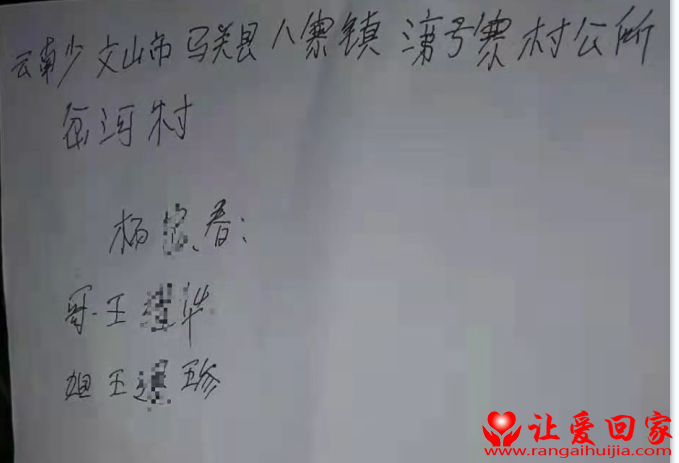 云南少 文山市 马关县 八寨镇 寨 村公所
河村
杨 春:
哥·王 华
姐 王 珍
让爱回家
www.rangaihuijia.com